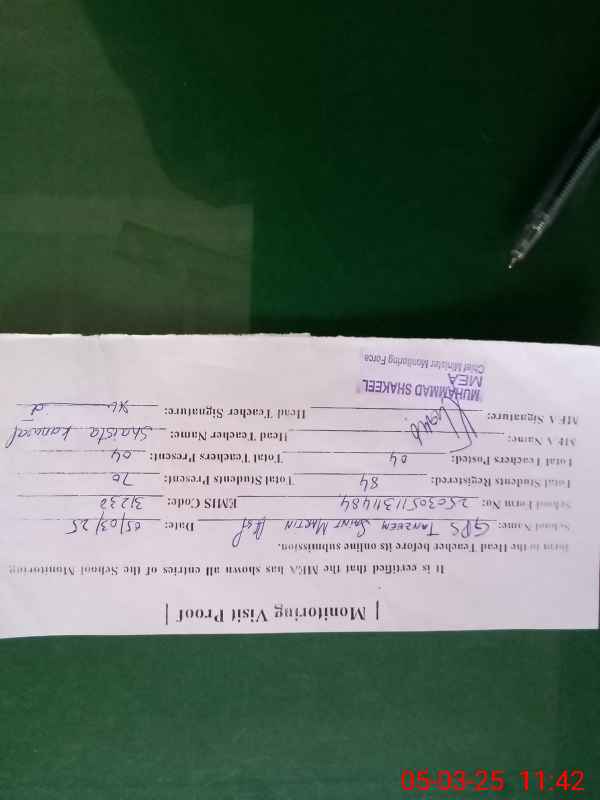 | Monitoring Visit Proof |
It is certified that the MEA has shown all entries of the School Monitoring
Form to the Head Teacher before its online submission.
School Name: GPS TANZEEM SAINT MARTIN Date: 05/03/25
School Form No: EMIS Code: 31232
Total Students Registered: 84 Total Students Present: 70
Total Teachers Posted: 04 Total Teachers Present: 04
MEA Name: Head Teacher Name: Shaista Kanwal
MEA Signature: Head Teacher Signature:
MUHAMMAD SHAKEEL
MEA
Chief Minister Monitoring Force
05-03-25 11:42